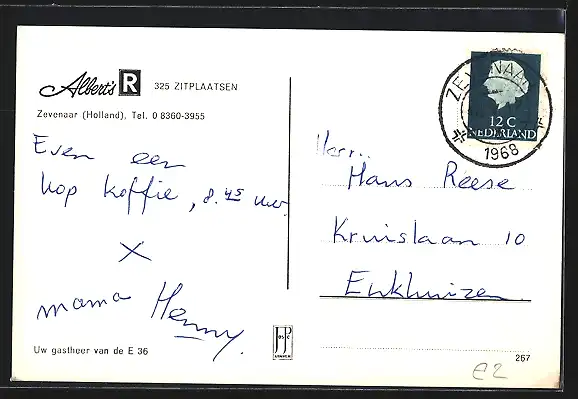 Albert's R 325 ZITPLAATSEN
Zevenaar (Holland), Tel. 0 8360-3955
Even een
kop koffie, 8.45 uur.
X
mama Henny.
Uw gastheer van de E 36
ZEVENAAR
1968
12 C
NEDERLAND
Herr.
Hans Reese
Kruislaan 10
Enkhuizen
267
e2